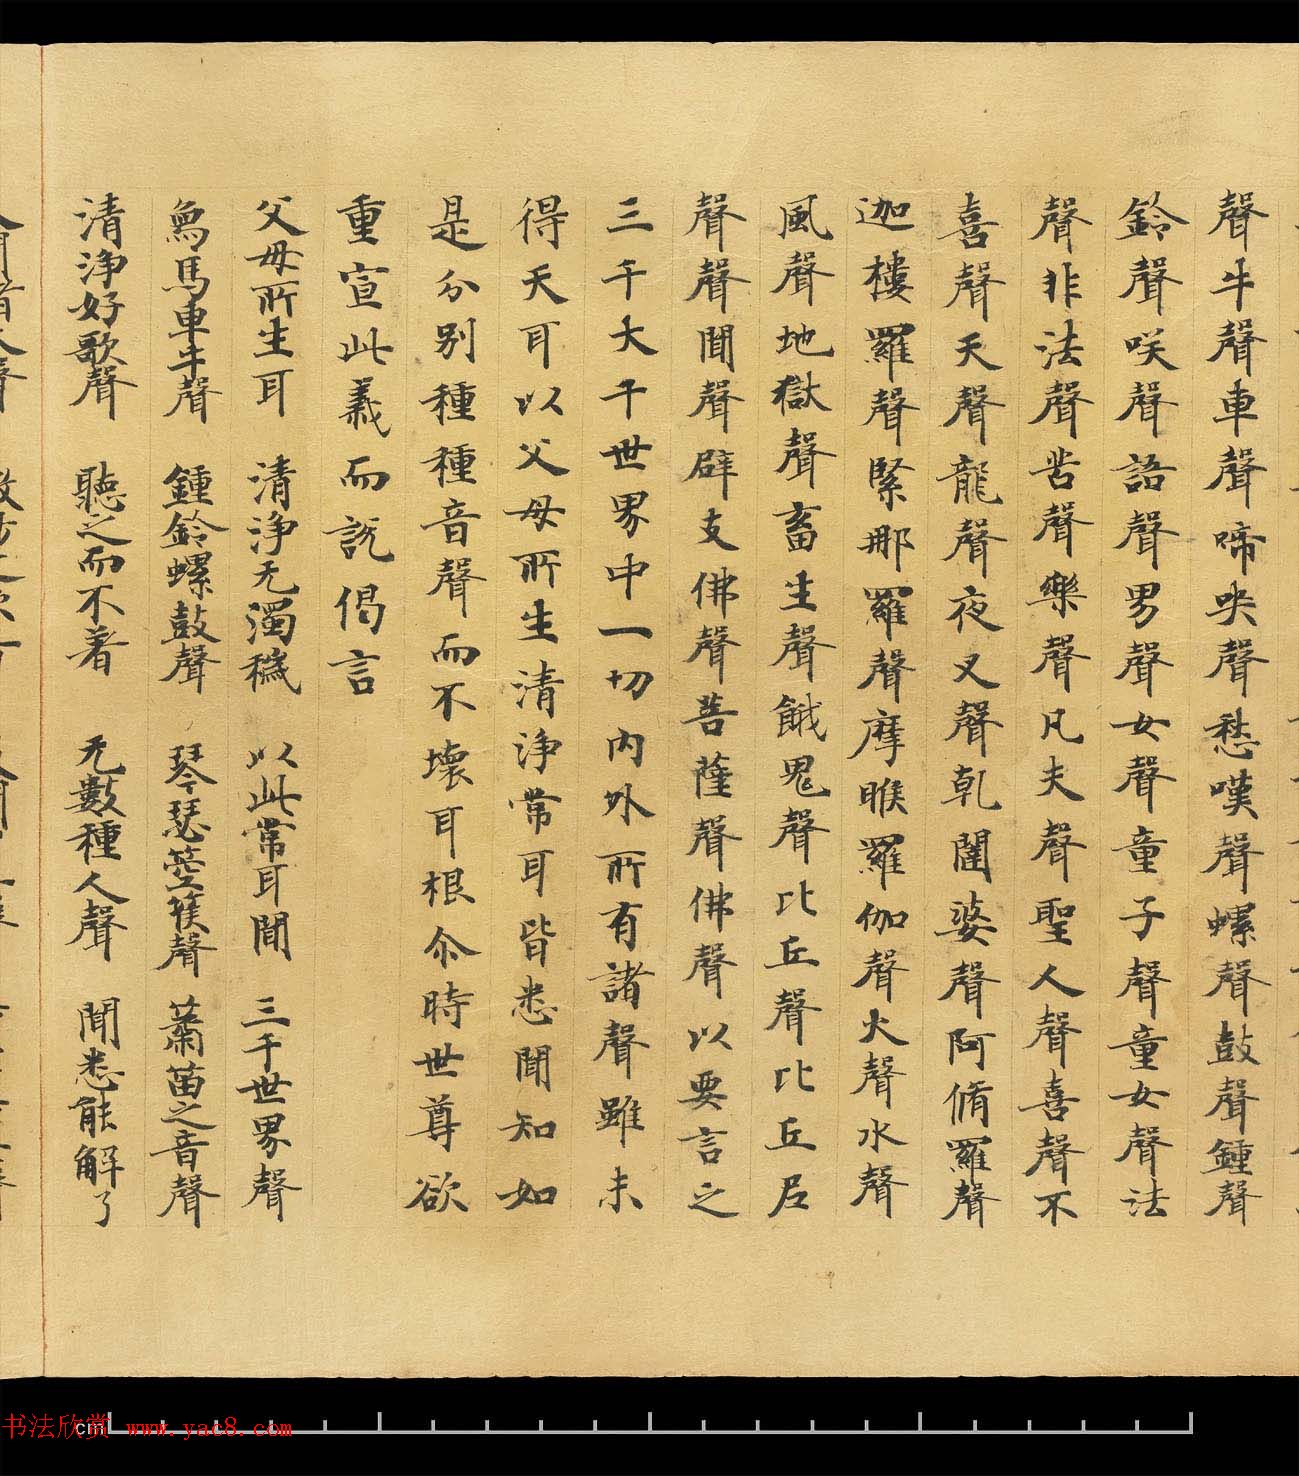 聲牛聲車聲啼哭聲愁嘆聲螺聲鼓聲鍾聲
鈴聲咲聲語聲男聲女聲童子聲童女聲法
聲非法聲苦聲樂聲凡夫聲聖人聲喜聲不
喜聲天聲龍聲夜叉聲乹闥婆聲阿脩羅聲
迦樓羅聲緊那羅聲摩睺羅伽聲火聲水聲
風聲地獄聲畜生聲餓鬼聲比丘聲比丘尼
聲聲聞聲辟支佛聲菩薩聲佛聲以要言之
三千大千世界中一切内外所有諸聲雖未
得天耳以父母所生清淨常耳皆悉聞知如
是分别種種音聲而不壞耳根尒時世尊欲
重宣此義而說偈言
父母所生耳 清淨无濁穢 以此常耳聞 三千世界聲
烏馬車牛聲 鍾鈴螺鼓聲 琴瑟箜篌聲 蕭笛之音聲
清淨好歌聲 聽之而不著 无數種人聲 聞悉能解了
书法欣赏 www.yac8.com
cm